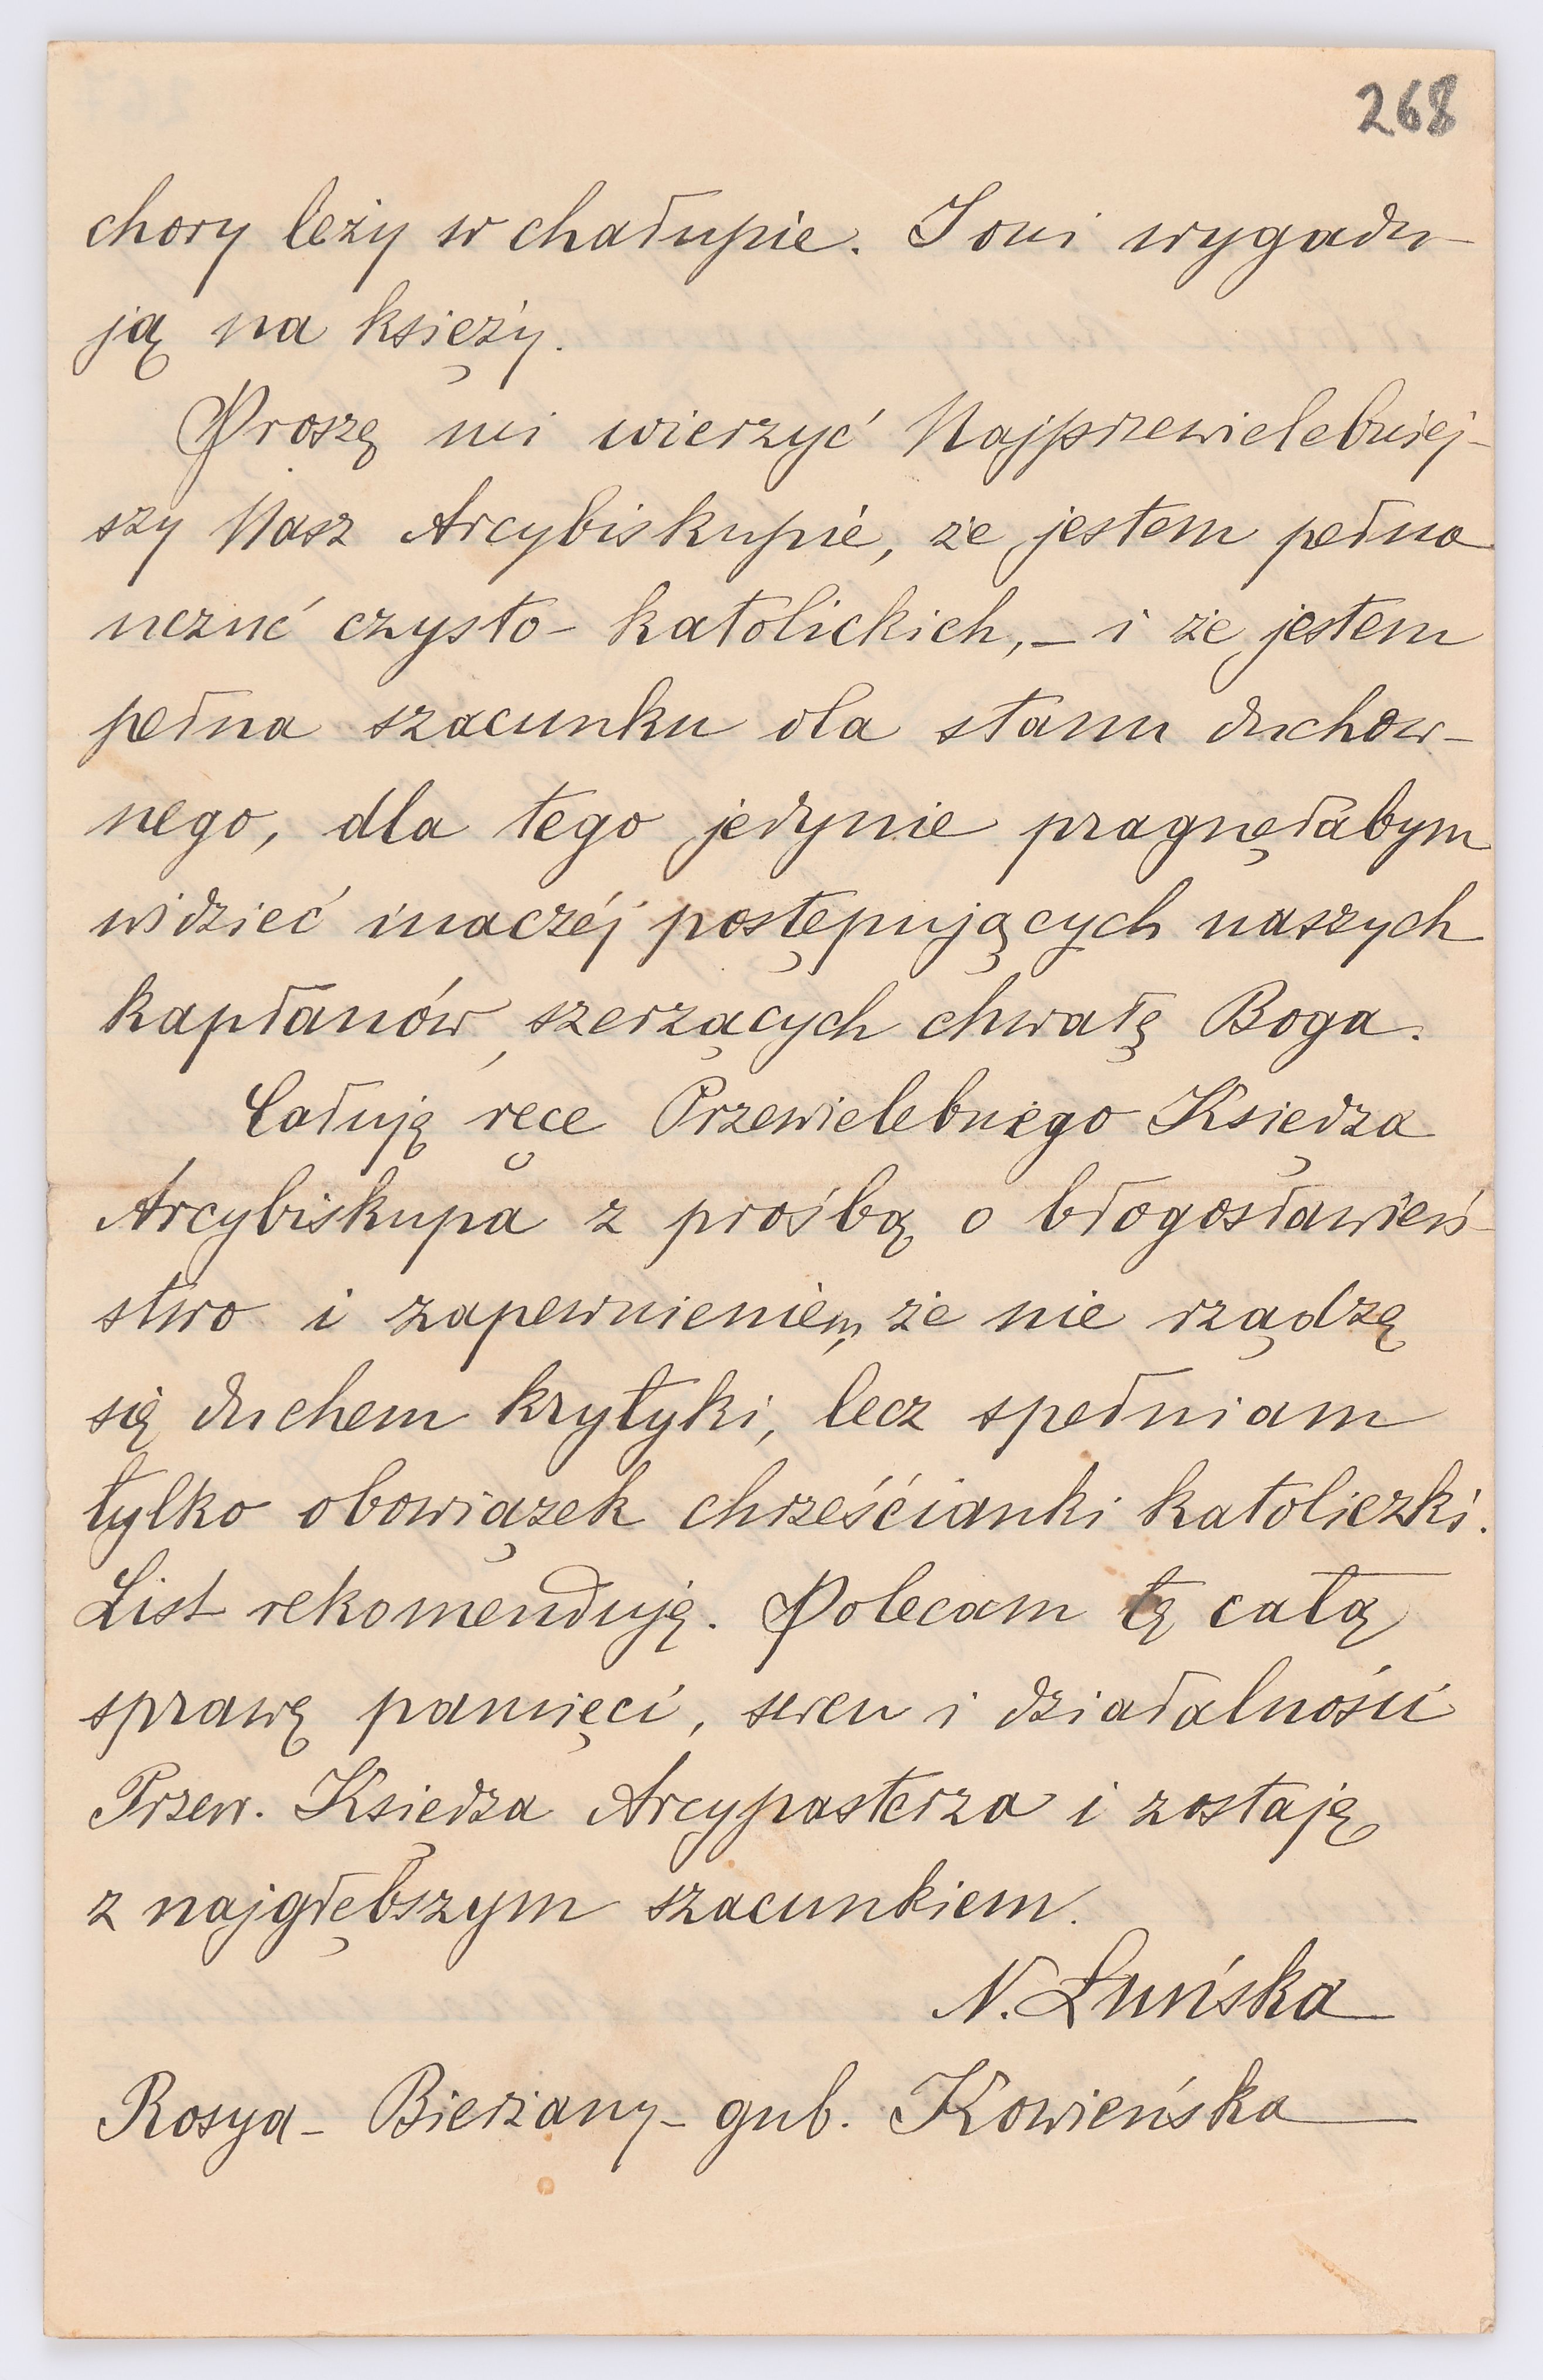 268
chory leży w chałupie. I oni wygadu-
ją na księży.
Proszę mi wierzyć Najprzewielebniej-
szy Nasz Arcybiskupie, że jestem pełna
uczuć czysto-katolickich, – i że jestem
pełna szacunku dla stanu duchow-
nego, dla tego jedynie pragnęłabym
widzieć inaczéj postępujących naszych
kapłanów, szerzących chwałę Boga.
Całuję ręce Przewielebnego Księdza
Arcybiskupa z prośbą o błogosławień-
stwo i zapewnieniem, że nie rządzę
się duchem krytyki, lecz spełniam
tylko obowiązek chrześcianki katoliczki.
List rekomenduję. Polecam tę całą
sprawę pamięci, sercu i działalności
Przew. Księdza Arcypasterza i zostaję
z najgłębszym szacunkiem.
N. Łuńska
Rosya – Bierżany – gub. Kowieńska